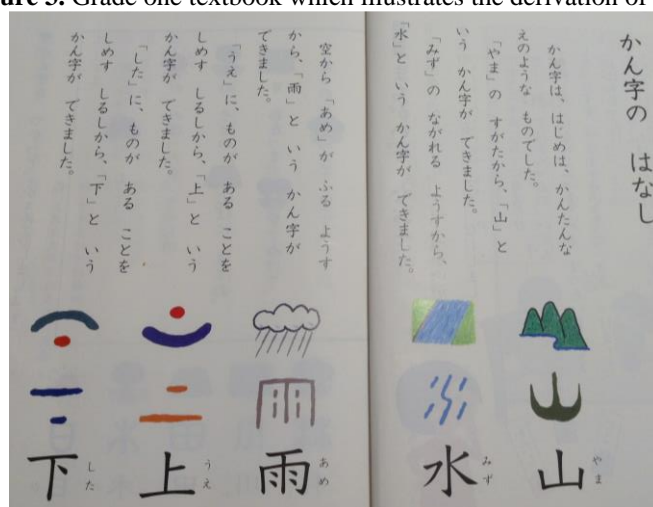 ure 3. Grade one textbook which illustrates the derivation of
かん字の はなし
かん字は、はじめは、かんたんな
えのような ものでした。
「やま」の すがたから、「山」と
いう かん字が できました。
「みず」の ながれる ようすから、
「水」と いう かん字が できました。
空から 「あめ」が ふる ようす
から、「雨」と いう かん字が
できました。
「うえ」に、ものが ある ことを
しめす しるしから、「上」と いう
かん字が できました。
「した」に、ものが ある ことを
しめす しるしから、「下」と いう
かん字が できました。
山 やま
水 みず
雨 あめ
上 うえ
下 した